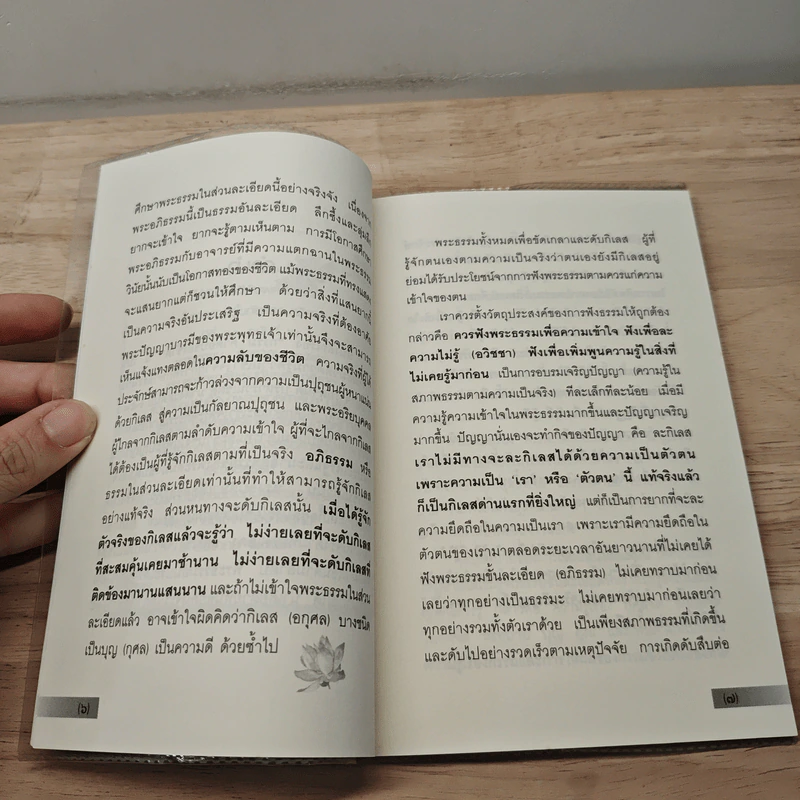 ศึกษาพระธรรมในส่วนละเอียดนี้อย่างจริงจัง
พระอภิธรรมนี้เป็นธรรมอันละเอียด ลึกซึ้งและ
ยากจะเข้าใจ ยากจะรู้ตามเห็นตาม การมีโอกาสศึกษา
พระอภิธรรมกับอาจารย์ที่มีความแตกฉานในพระธรรม
วินัยนั้นนับเป็นโอกาสทองของชีวิต แม้พระธรรมที่ทรงแสดง
จะแสนยากแต่ก็ชวนให้ศึกษา ด้วยว่าสิ่งที่แสนยากก็
เป็นความจริงอันประเสริฐ เป็นความจริงที่ต้องอาศัย
พระปัญญาบารมีของพระพุทธเจ้าเท่านั้นจึงจะสามารถ
เห็นแจ้งแทงตลอดในความลับของชีวิต ความจริงที่ผู้ได้
ประจักษ์สามารถจะก้าวล่วงจากความเป็นปุถุชนผู้หนาแน่น
ด้วยกิเลส สู่ความเป็นกัลยาณปุถุชน และพระอริยบุคคล
ผู้ไกลจากกิเลสตามลำดับความเข้าใจ ผู้ที่จะไกลจากกิเลส
ได้ต้องเป็นผู้ที่รู้จักกิเลสตามที่เป็นจริง อภิธรรม หรือ
ธรรมในส่วนละเอียดเท่านั้นที่ทำให้สามารถรู้จักกิเลส
อย่างแท้จริง ส่วนหนทางจะดับกิเลสนั้น เมื่อได้รู้จัก
ตัวจริงของกิเลสแล้วจะรู้ว่า ไม่ง่ายเลยที่จะดับกิเลส
ที่สะสมคุ้นเคยมาช้านาน ไม่ง่ายเลยที่จะดับกิเลสที่
ติดข้องมานานแสนนาน และถ้าไม่เข้าใจพระธรรมในส่วน
ละเอียดแล้ว อาจเข้าใจผิดคิดว่ากิเลส (อกุศล) บางชนิด
เป็นบุญ (กุศล) เป็นความดี ด้วยซ้ำไป
(๖)
พระธรรมทั้งหมดเพื่อขัดเกลาและดับกิเลส ผู้ที่
รู้จักตนเองตามความเป็นจริงว่าตนเองยังมีกิเลสอยู่
ย่อมได้รับประโยชน์จากการฟังพระธรรมตามควรแก่ความ
เข้าใจของตน
เราควรตั้งวัตถุประสงค์ของการฟังธรรมให้ถูกต้อง
กล่าวคือ ควรฟังพระธรรมเพื่อความเข้าใจ ฟังเพื่อละ
ความไม่รู้ (อวิชชา) ฟังเพื่อเพิ่มพูนความรู้ในสิ่งที่
ไม่เคยรู้มาก่อน เป็นการอบรมเจริญปัญญา (ความรู้ใน
สภาพธรรมตามความเป็นจริง) ทีละเล็กทีละน้อย เมื่อมี
ความรู้ความเข้าใจในพระธรรมมากขึ้นและปัญญาเจริญ
มากขึ้น ปัญญานั่นเองจะทำกิจของปัญญา คือ ละกิเลส
เราไม่มีทางจะละกิเลสได้ด้วยความเป็นตัวตน
เพราะความเป็น ‘เรา’ หรือ ‘ตัวตน’ นี้ แท้จริงแล้ว
ก็เป็นกิเลสด่านแรกที่ยิ่งใหญ่ แต่ก็เป็นการยากที่จะละ
ความยึดถือในความเป็นเรา เพราะเรามีความยึดถือใน
ตัวตนของเรามาตลอดระยะเวลาอันยาวนานที่ไม่เคยได้
ฟังพระธรรมขั้นละเอียด (อภิธรรม) ไม่เคยทราบมาก่อน
เลยว่าทุกอย่างเป็นธรรมะ ไม่เคยทราบมาก่อนเลยว่า
ทุกอย่างรวมทั้งตัวเราด้วย เป็นเพียงสภาพธรรมที่เกิดขึ้น
และดับไปอย่างรวดเร็วตามเหตุปัจจัย การเกิดดับสืบต่อ
(๗)